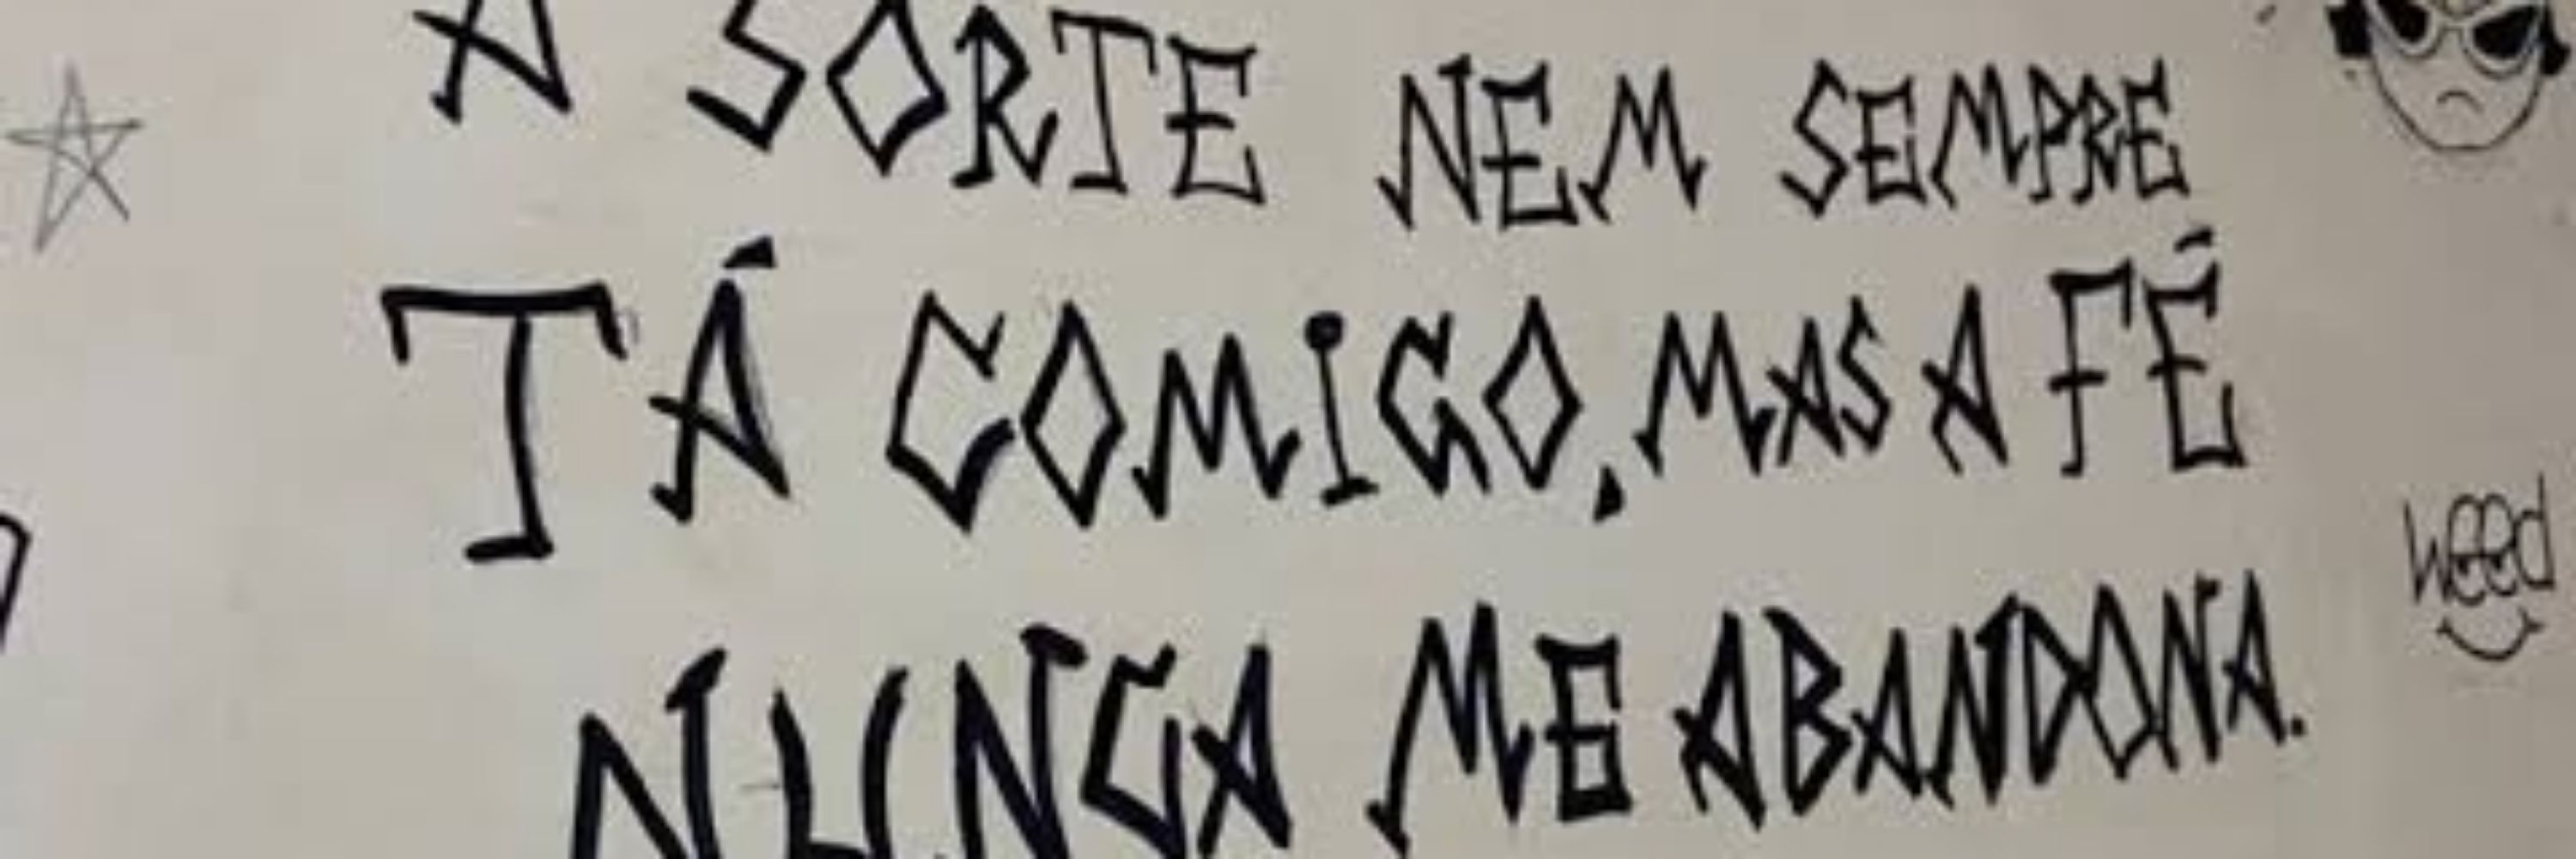 A SORTE NEM SEMPRE
TÁ COMIGO, MAS A FÉ
weed
NUNCA ME ABANDONA.